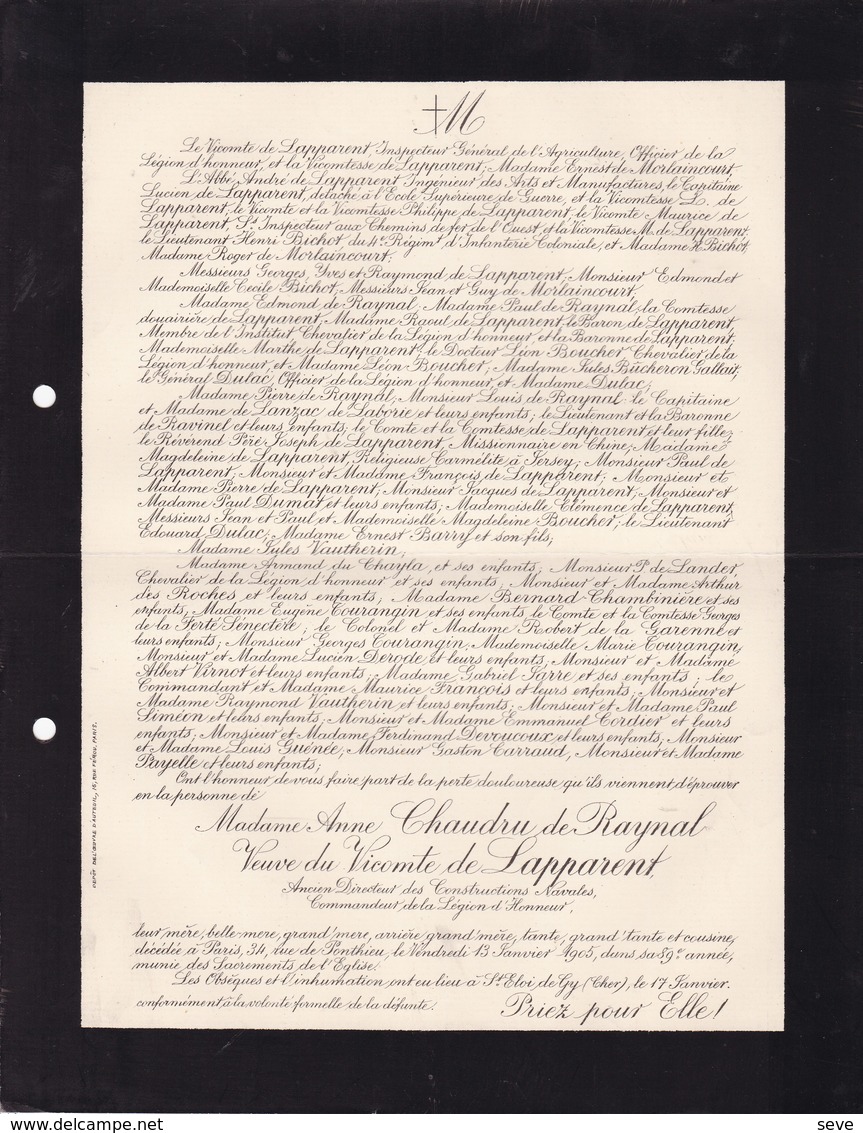 M
Le Vicomte de Lapparent, Inspecteur Général de l'Agriculture, Officier de la
Légion d'honneur, et la Vicomtesse de Lapparent; Madame Ernest de Morlaincourt,
L'Abbé André de Lapparent, Ingénieur des Arts et Manufactures, le Capitaine
Lucien de Lapparent, détaché à l'Ecole Supérieure de Guerre, et la Vicomtesse L. de
Lapparent, le Vicomte et la Vicomtesse Philippe de Lapparent, le Vicomte Maurice de
Lapparent, St Inspecteur aux Chemins de fer de l'Ouest, et la Vicomtesse M. de Lapparent,
le Lieutenant Henri Bichot du 4e Régimt d'Infanterie Coloniale, et Madame H. Bichot,
Madame Roger de Morlaincourt,
Messieurs Georges, Yves et Raymond de Lapparent, Monsieur Edmond et
Mademoiselle Cécile Bichot, Messieurs Jean et Guy de Morlaincourt,
Madame Edmond de Raynal, Madame Paul de Raynal, la Comtesse
douairière de Lapparent, Madame Raoul de Lapparent, le Baron de Lapparent,
Membre de l'Institut, Chevalier de la Légion d'honneur, et la Baronne de Lapparent;
Mademoiselle Marthe de Lapparent, le Docteur Léon Boucher Chevalier de la
Légion d'honneur, et Madame Léon Boucher, Madame Jules Bûcheron Gallait,
le Général Dulac, Officier de la Légion d'honneur, et Madame Dulac;
Madame Pierre de Raynal, Monsieur Louis de Raynal le Capitaine
et Madame de Lanzac de Laborie et leurs enfants; le Lieutenant et la Baronne
de Ravinel et leurs enfants, le Comte et la Comtesse de Lapparent et leur fille;
le Révérend Père Joseph de Lapparent, Missionnaire en Chine; Madame
Magdeleine de Lapparent, Religieuse Carmélite à Jersey; Monsieur Paul de
Lapparent, Monsieur et Madame François de Lapparent; Monsieur et
Madame Pierre de Lapparent; Monsieur Jacques de Lapparent; Monsieur et
Madame Paul Dumat et leurs enfants; Mademoiselle Clémence de Lapparent,
Messieurs Jean et Paul et Mademoiselle Magdeleine Boucher; le Lieutenant
Edouard Dulac; Madame Ernest Barry et son fils;
Madame Jules Vautherin;
Madame Armand du Chayla, et ses enfants; Monsieur P. de Lander,
Chevalier de la Légion d'honneur et ses enfants; Monsieur et Madame Arthur
des Roches et leurs enfants; Madame Bernard-Chambinière et ses
enfants, Madame Eugène Tourangin et ses enfants, le Comte et la Comtesse Georges
de la Ferté Sénectère; le Colonel et Madame Robert de la Garenne et
leurs enfants; Monsieur Georges Tourangin, Mademoiselle Marie Tourangin,
Monsieur et Madame Lucien Derode, et leurs enfants, Monsieur et Madame
Albert Virnot et leurs enfants; Madame Gabriel Jarre et ses enfants; le
Commandant et Madame Maurice François et leurs enfants; Monsieur et
Madame Raymond Vautherin et leurs enfants; Monsieur et Madame Paul
Siméon et leurs enfants; Monsieur et Madame Emmanuel Cordier et leurs
enfants; Monsieur et Madame Ferdinand Devoucoux et leurs enfants; Monsieur
et Madame Louis Guénée; Monsieur Gaston Carraud, Monsieur et Madame
Payelle et leurs enfants;
Ont l'honneur de vous faire part de la perte douloureuse qu'ils viennent d'éprouver
en la personne de
Madame Anne Chaudru de Raynal
Veuve du Vicomte de Lapparent,
Ancien Directeur des Constructions Navales,
Commandeur de la Légion d'Honneur,
leur mère, belle-mère, grand'mère, arrière grand'mère, tante, grand'tante et cousine,
décédée à Paris, 34, rue de Ponthieu, le Vendredi 13 Janvier 1905, dans sa 89e année,
munie des Sacrements de l'Eglise.
Les Obsèques et l'inhumation ont eu lieu à St Eloi de Gy (Cher), le 17 Janvier.
conformément à la volonté formelle de la défunte.
Priez pour Elle!
DÉPÔT DE L'ŒUVRE D'AUTEUIL, 16, RUE FÉROU, PARIS.
seve